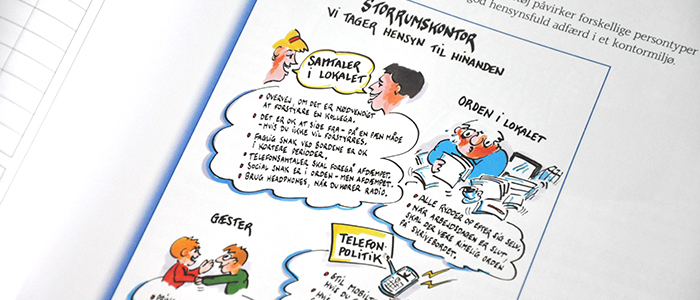 tøj påvirker forskellige persontyper
god hensynsfuld adfærd i et kontormiljø.
STORRUMSKONTOR
VI TAGER HENSYN TIL HINANDEN
SAMTALER
I LOKALET
• OVERVEJ, OM DET ER NØDVENDIGT
AT FORSTYRRE EN KOLLEGA.
• DET ER OK AT SIGE FRA - PÅ EN PÆN MÅDE
- HVIS DU IKKE VIL FORSTYRRES.
• FAGLIG SNAK VED BORDENE ER OK
I KORTERE PERIODER.
• TELEFONSAMTALER SKAL FOREGÅ AFDÆMPET.
• SOCIAL SNAK ER I ORDEN - MEN AFDÆMPET.
• BRUG HEADPHONES, NÅR DU HØRER RADIO.
ORDEN I LOKALET
• ALLE RYDDER OP EFTER SIG SELV.
• NÅR ARBEJDSDAGEN ER SLUT
SKAL DER VÆRE RIMELIG ORDEN
PÅ SKRIVEBORDET.
GÆSTER
TELEFON-
POLITIK
HVIS DU